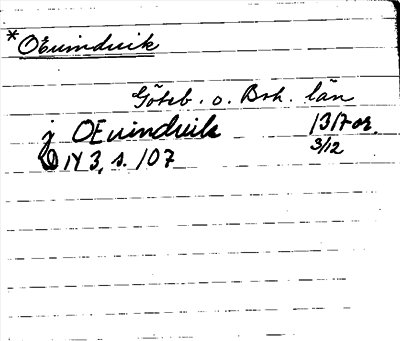 *OEuindvik
Göteb. o. Boh. län
j OEuindvik 1317 or.
3/12
IV 3, s. 107